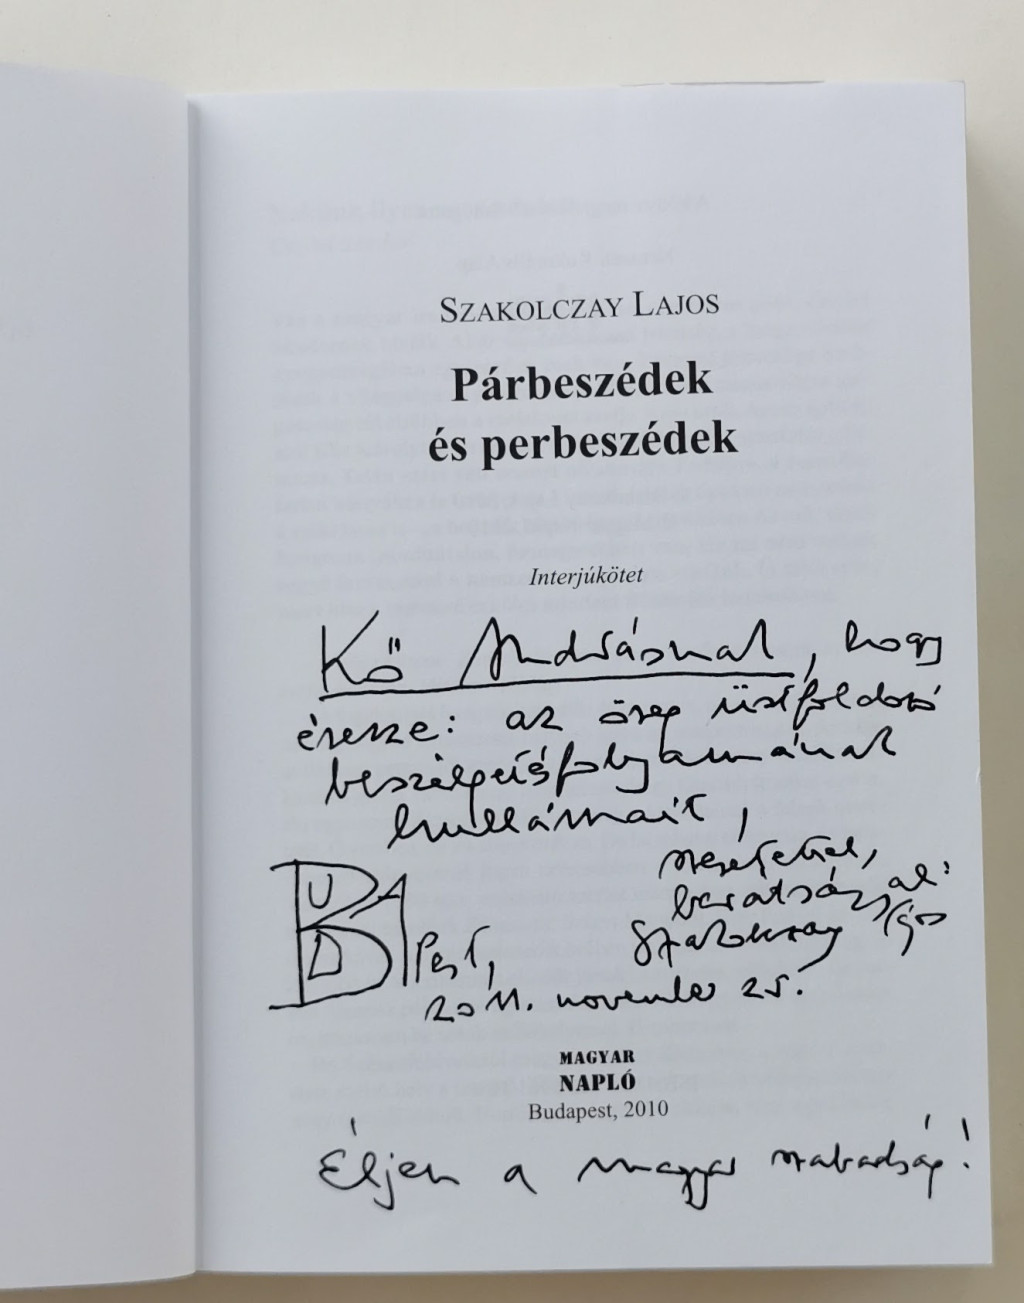 SZAKOLCZAY LAJOS
Párbeszédek
és perbeszédek
Interjúkötet
Kő Andrásnak, hogy
érezze: az öreg üstfoldozó
beszélgetésfolyamának
hullámait,
szeretettel,
barátsággal:
Szakolczay Lajos
BUDAPest,
2011. november 25.
MAGYAR
NAPLÓ
Budapest, 2010
Éljen a magyar szabadság!